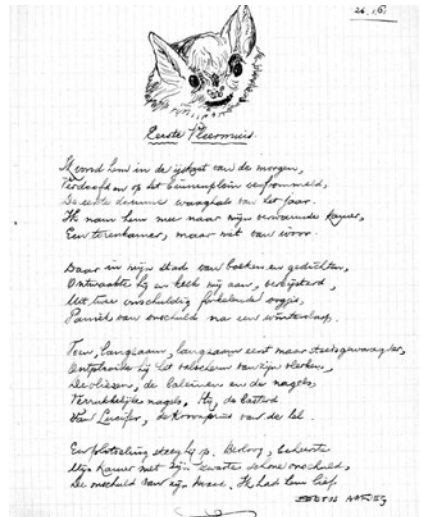 26.16.
Eerste Vleermuis.
Ik vond hem in de ijstijd van de morgen,
Verdoofd en op het Eeuwenplein verfrommeld,
De eerste dwaze waaghals van het jaar.
Ik nam hem mee naar mijn verwarmde kamer,
Een torenkamer, maar niet van ivoor.
Daar in mijn stad van boeken en gedichten,
Ontwaakte hij en keek mij aan, verbijsterd,
Met twee onschuldig fonkelende oogjes,
Paniek van onschuld na een winterslaap.
Toen, langzaam, langzaam eerst maar steeds gewaagder,
Ontplooide hij het valscherm van zijn vlerken,
De vliezen, de baleinen en de nagels,
Verrukkelijke nagels, Hij, de bastard
Van Lucifer, de kroonprins van de hel.
En plotseling steeg hij op. Bevloog, beheerste
Mijn kamer met zijn zwarte schone onschuld,
De onschuld van zijn kwaad. Ik had hem lief